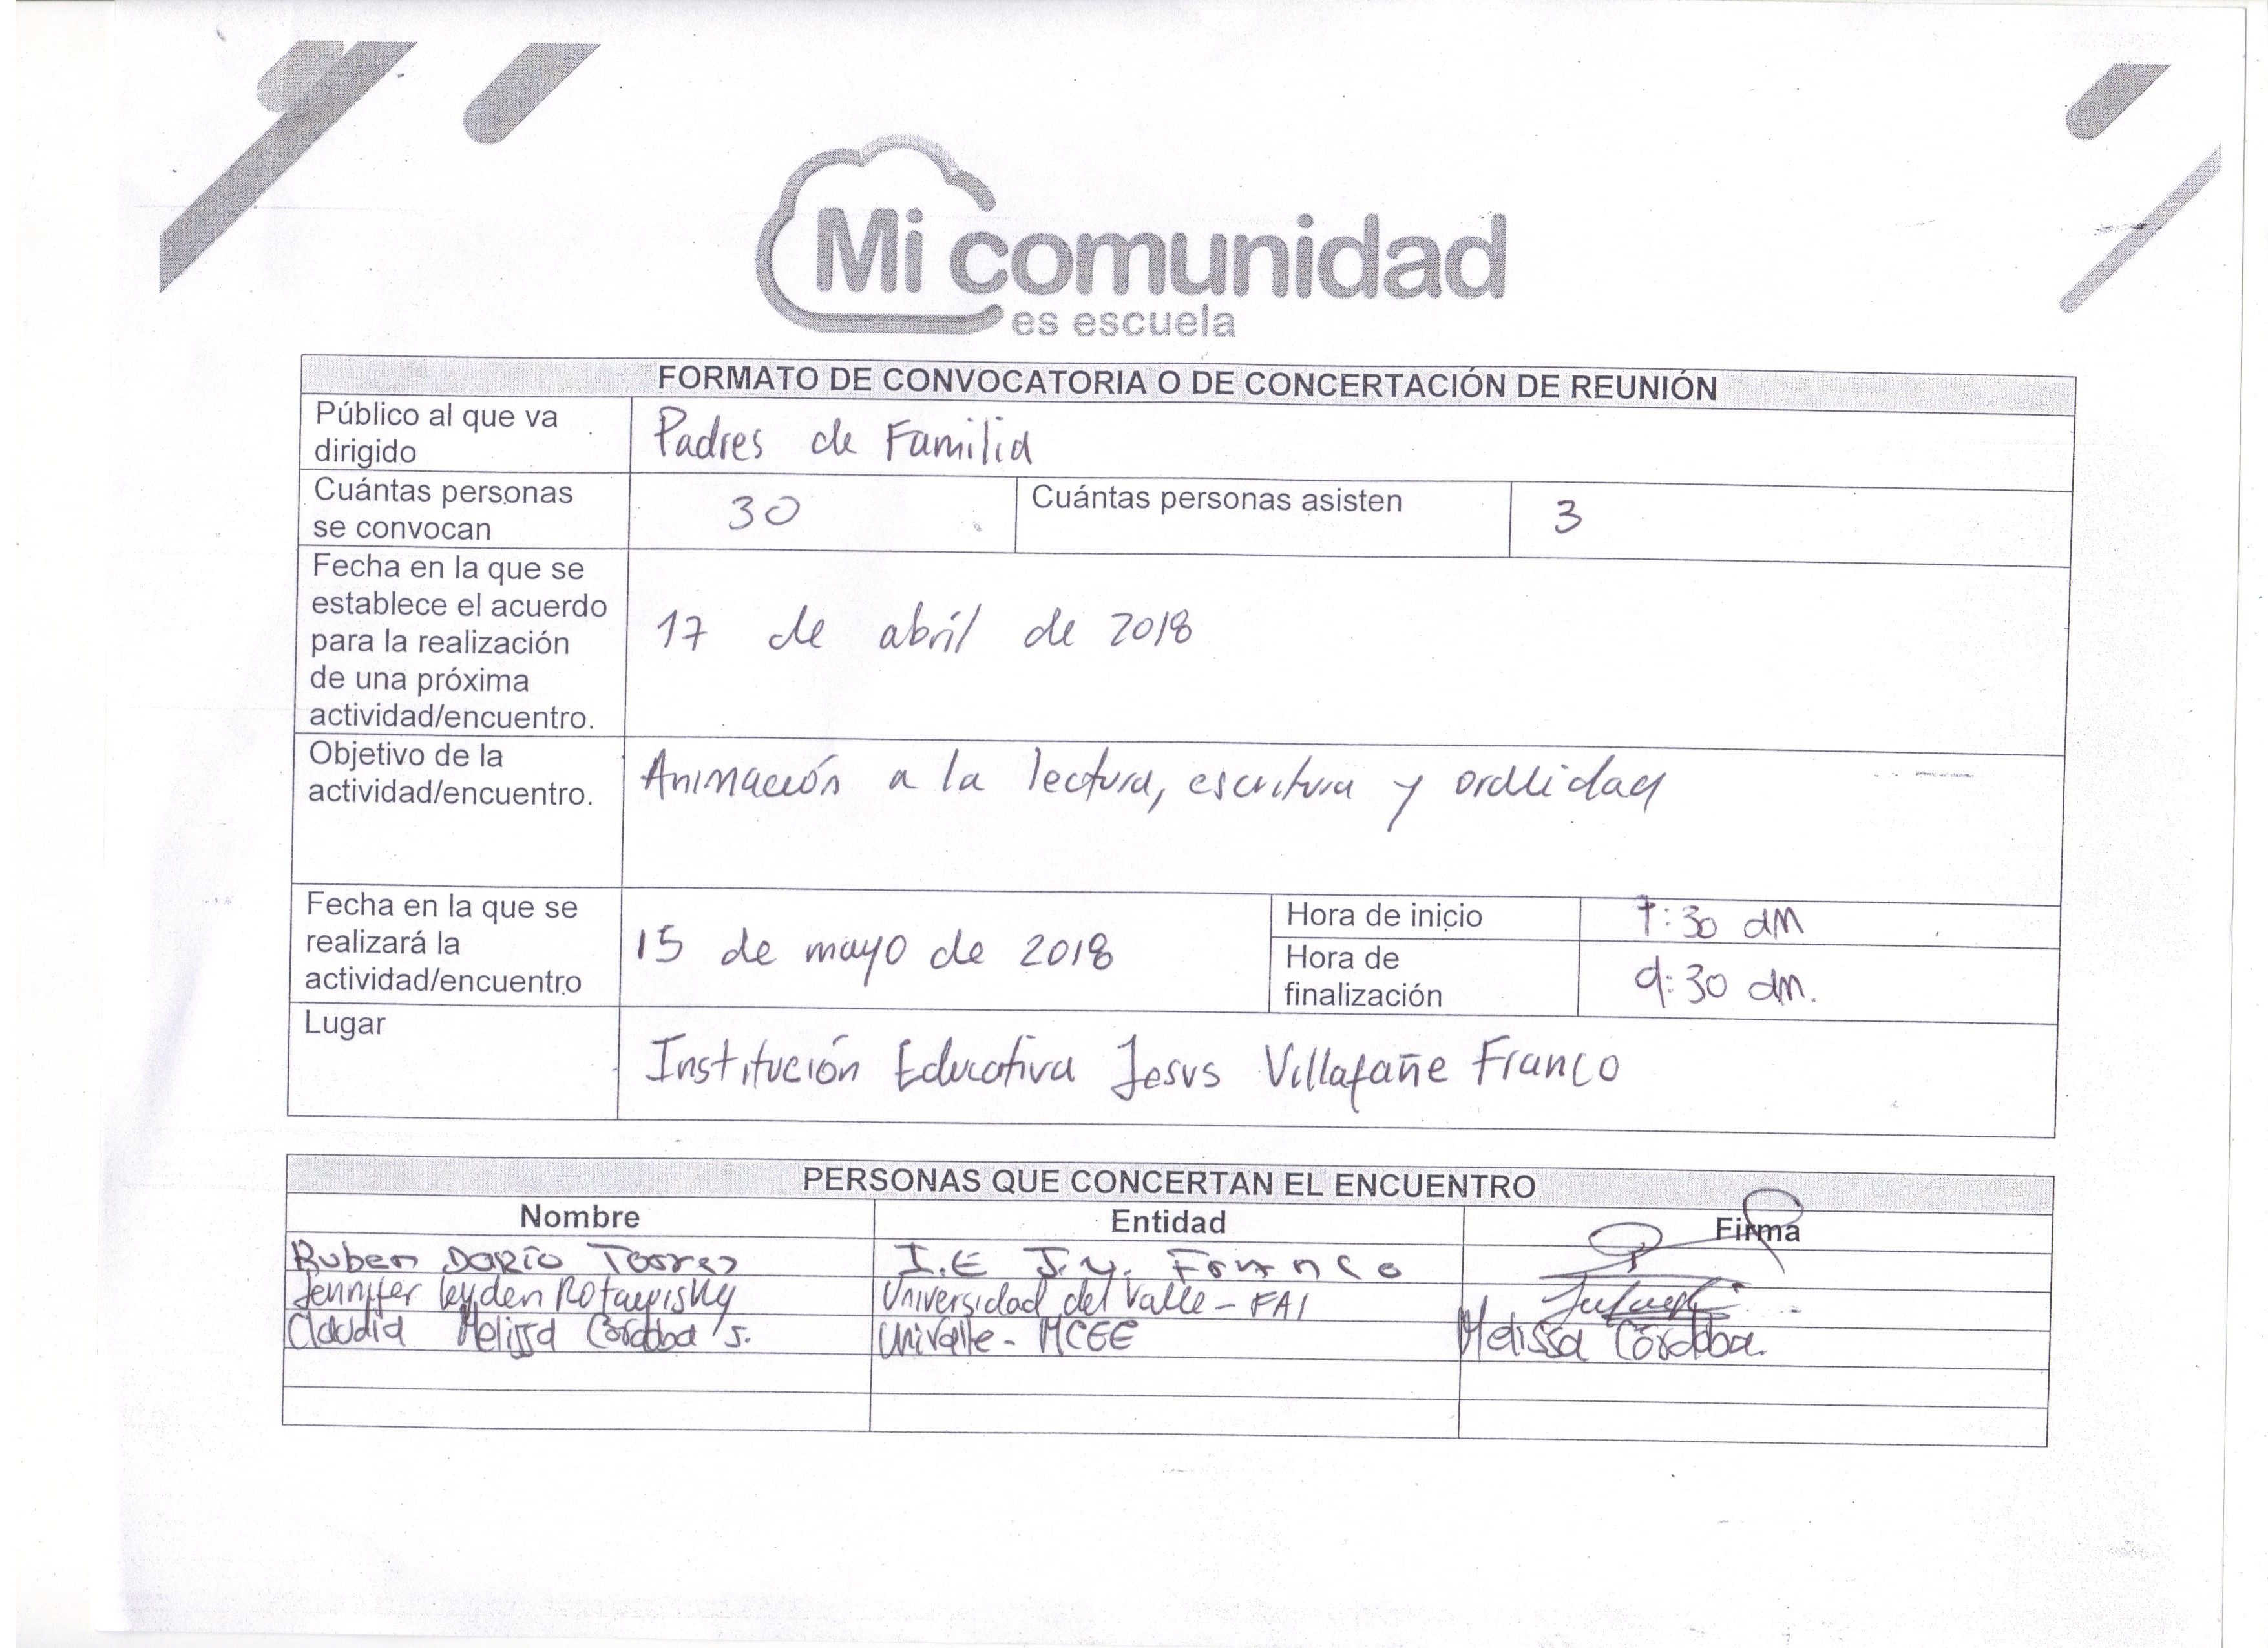 Mi comunidad
es escuela
FORMATO DE CONVOCATORIA O DE CONCERTACIÓN DE REUNIÓN
Público al que va
dirigido
Padres de Familia
Cuántas personas
se convocan
30
Cuántas personas asisten
3
Fecha en la que se
establece el acuerdo
para la realización
de una próxima
actividad/encuentro.
17 de abril de 2018
Objetivo de la
actividad/encuentro.
Animación a la lectura, escritura y oralidad
Fecha en la que se
realizará la
actividad/encuentro
15 de mayo de 2018
Hora de inicio
7:30 am
Hora de
finalización
9:30 am.
Lugar
Institución Educativa Jesus Villafañe Franco
PERSONAS QUE CONCERTAN EL ENCUENTRO
Nombre Entidad Firma
Ruben DARÍO Torres I.E J.V. Franco
Jennifer Leyden Universidad del Valle - FAI
Claudia Melissa Córdoba S. Univalle - MCEE Melissa Córdoba.